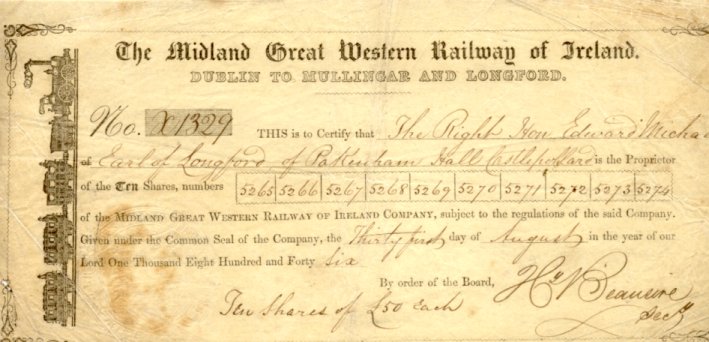 The Midland Great Western Railway of Ireland.
DUBLIN TO MULLINGAR AND LONGFORD.
No. X1329 THIS is to Certify that The Right Hon. Edward Micha
of Earl of Longford of Pakenham Hall Castlepollard is the Proprietor
of the Ten Shares, numbers 5265 5266 5267 5268 5269 5270 5271 5272 5273 5274
of the MIDLAND GREAT WESTERN RAILWAY OF IRELAND COMPANY, subject to the regulations of the said Company.
Given under the Common Seal of the Company, the Thirty first day of August in the year of our
Lord One Thousand Eight Hundred and Forty six
By order of the Board,
Ten Shares of £50 each
Secy